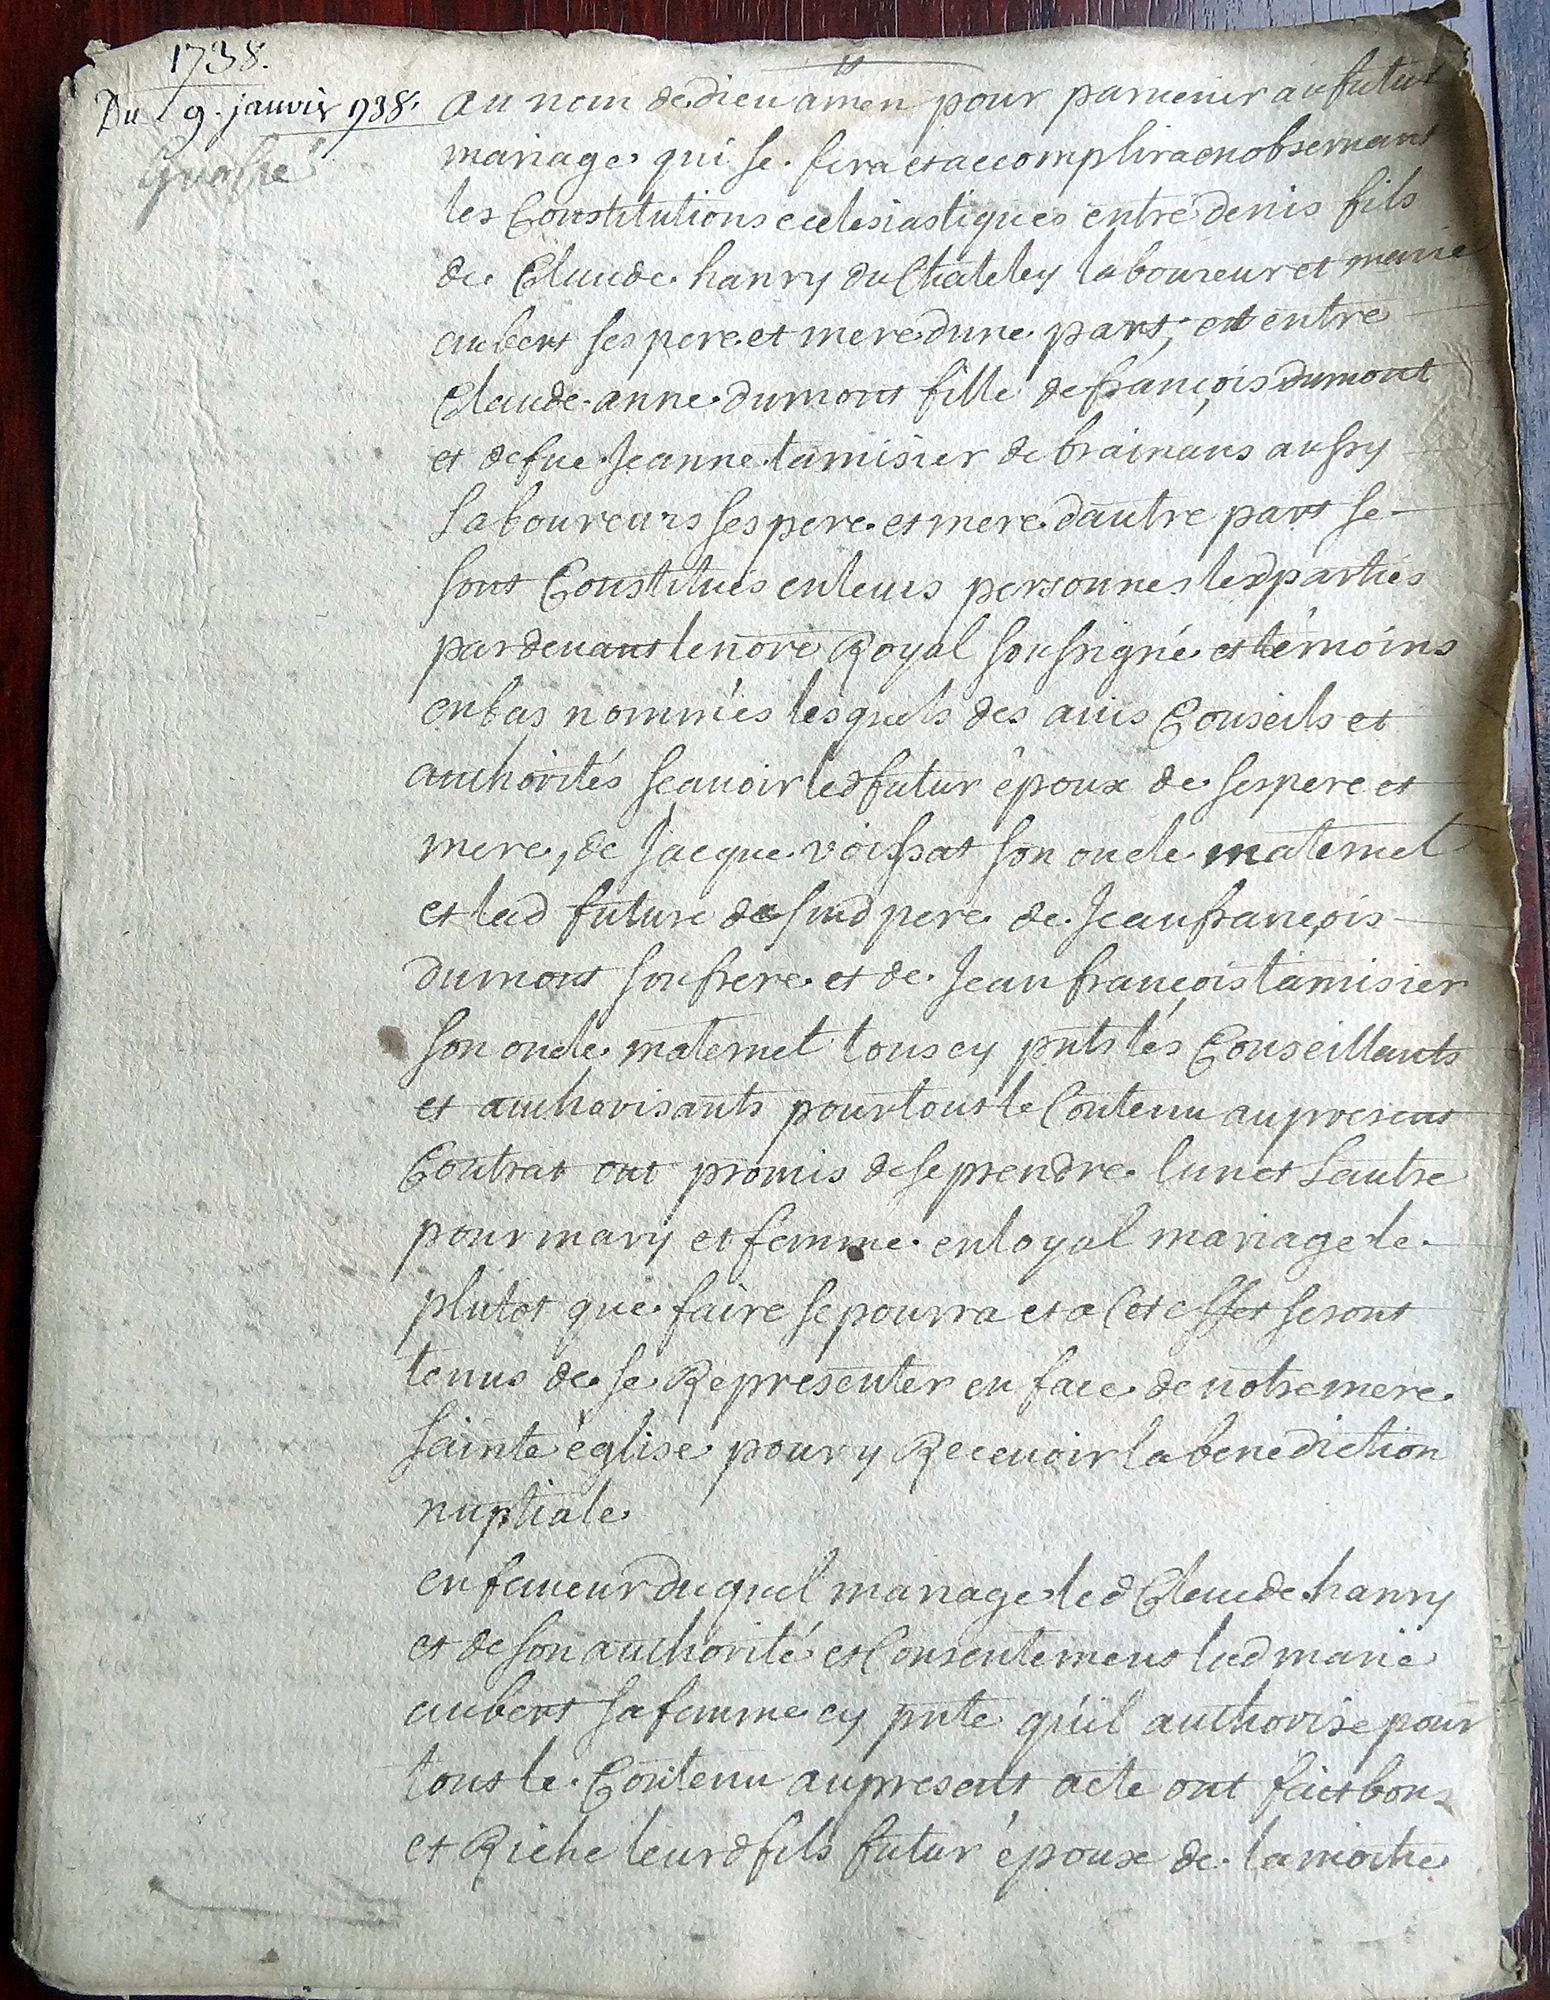 1738.
Du 9. janvir 1738.
au nom de dieu amen pour parvenir au futur
mariage qui se fera et accomplira en observant
les Constitutions eclesiastiques entre denis fils
de Claude hanry du Chateley laboureur et marie
aubert ses pere et mere dune part, et entre
Claude anne dumont fille de françois dumont
et de fue Jeanne tamisier de brainans aussy
laboureurs ses pere et mere dautre part se
sont Constitués en leurs personnes lesd parties
pardevant le nore Royal soussigné et témoins
en bas nommés lesquels des avis Conseils et
authorités scavoir led futur époux de ses pere et
mere, de Jacque voissat son oncle maternel
et lad future de sund pere de Jean françois
dumont son frere et de Jean françois tamisier
son oncle maternel tous cy pnts lés Conseillants
et authorisants pour tout le Contenu au present
Contrat ont promis de se prendre lun et lautre
pour mary et femme en loyal mariage le
plutot que faire se pourra et a Cet effet seront
tenus de se Representer en face de notre mere
sainte église pour y Recevoir la benediction
nuptiale
en faveur du quel mariage led Claude hanry
et de son authorité et Consentement lad marie
aubert sa femme cy pnte qu'il authorise pour
tout le Contenu au present acte ont fait bon
et Riche leurd fils futur époux de la moitie